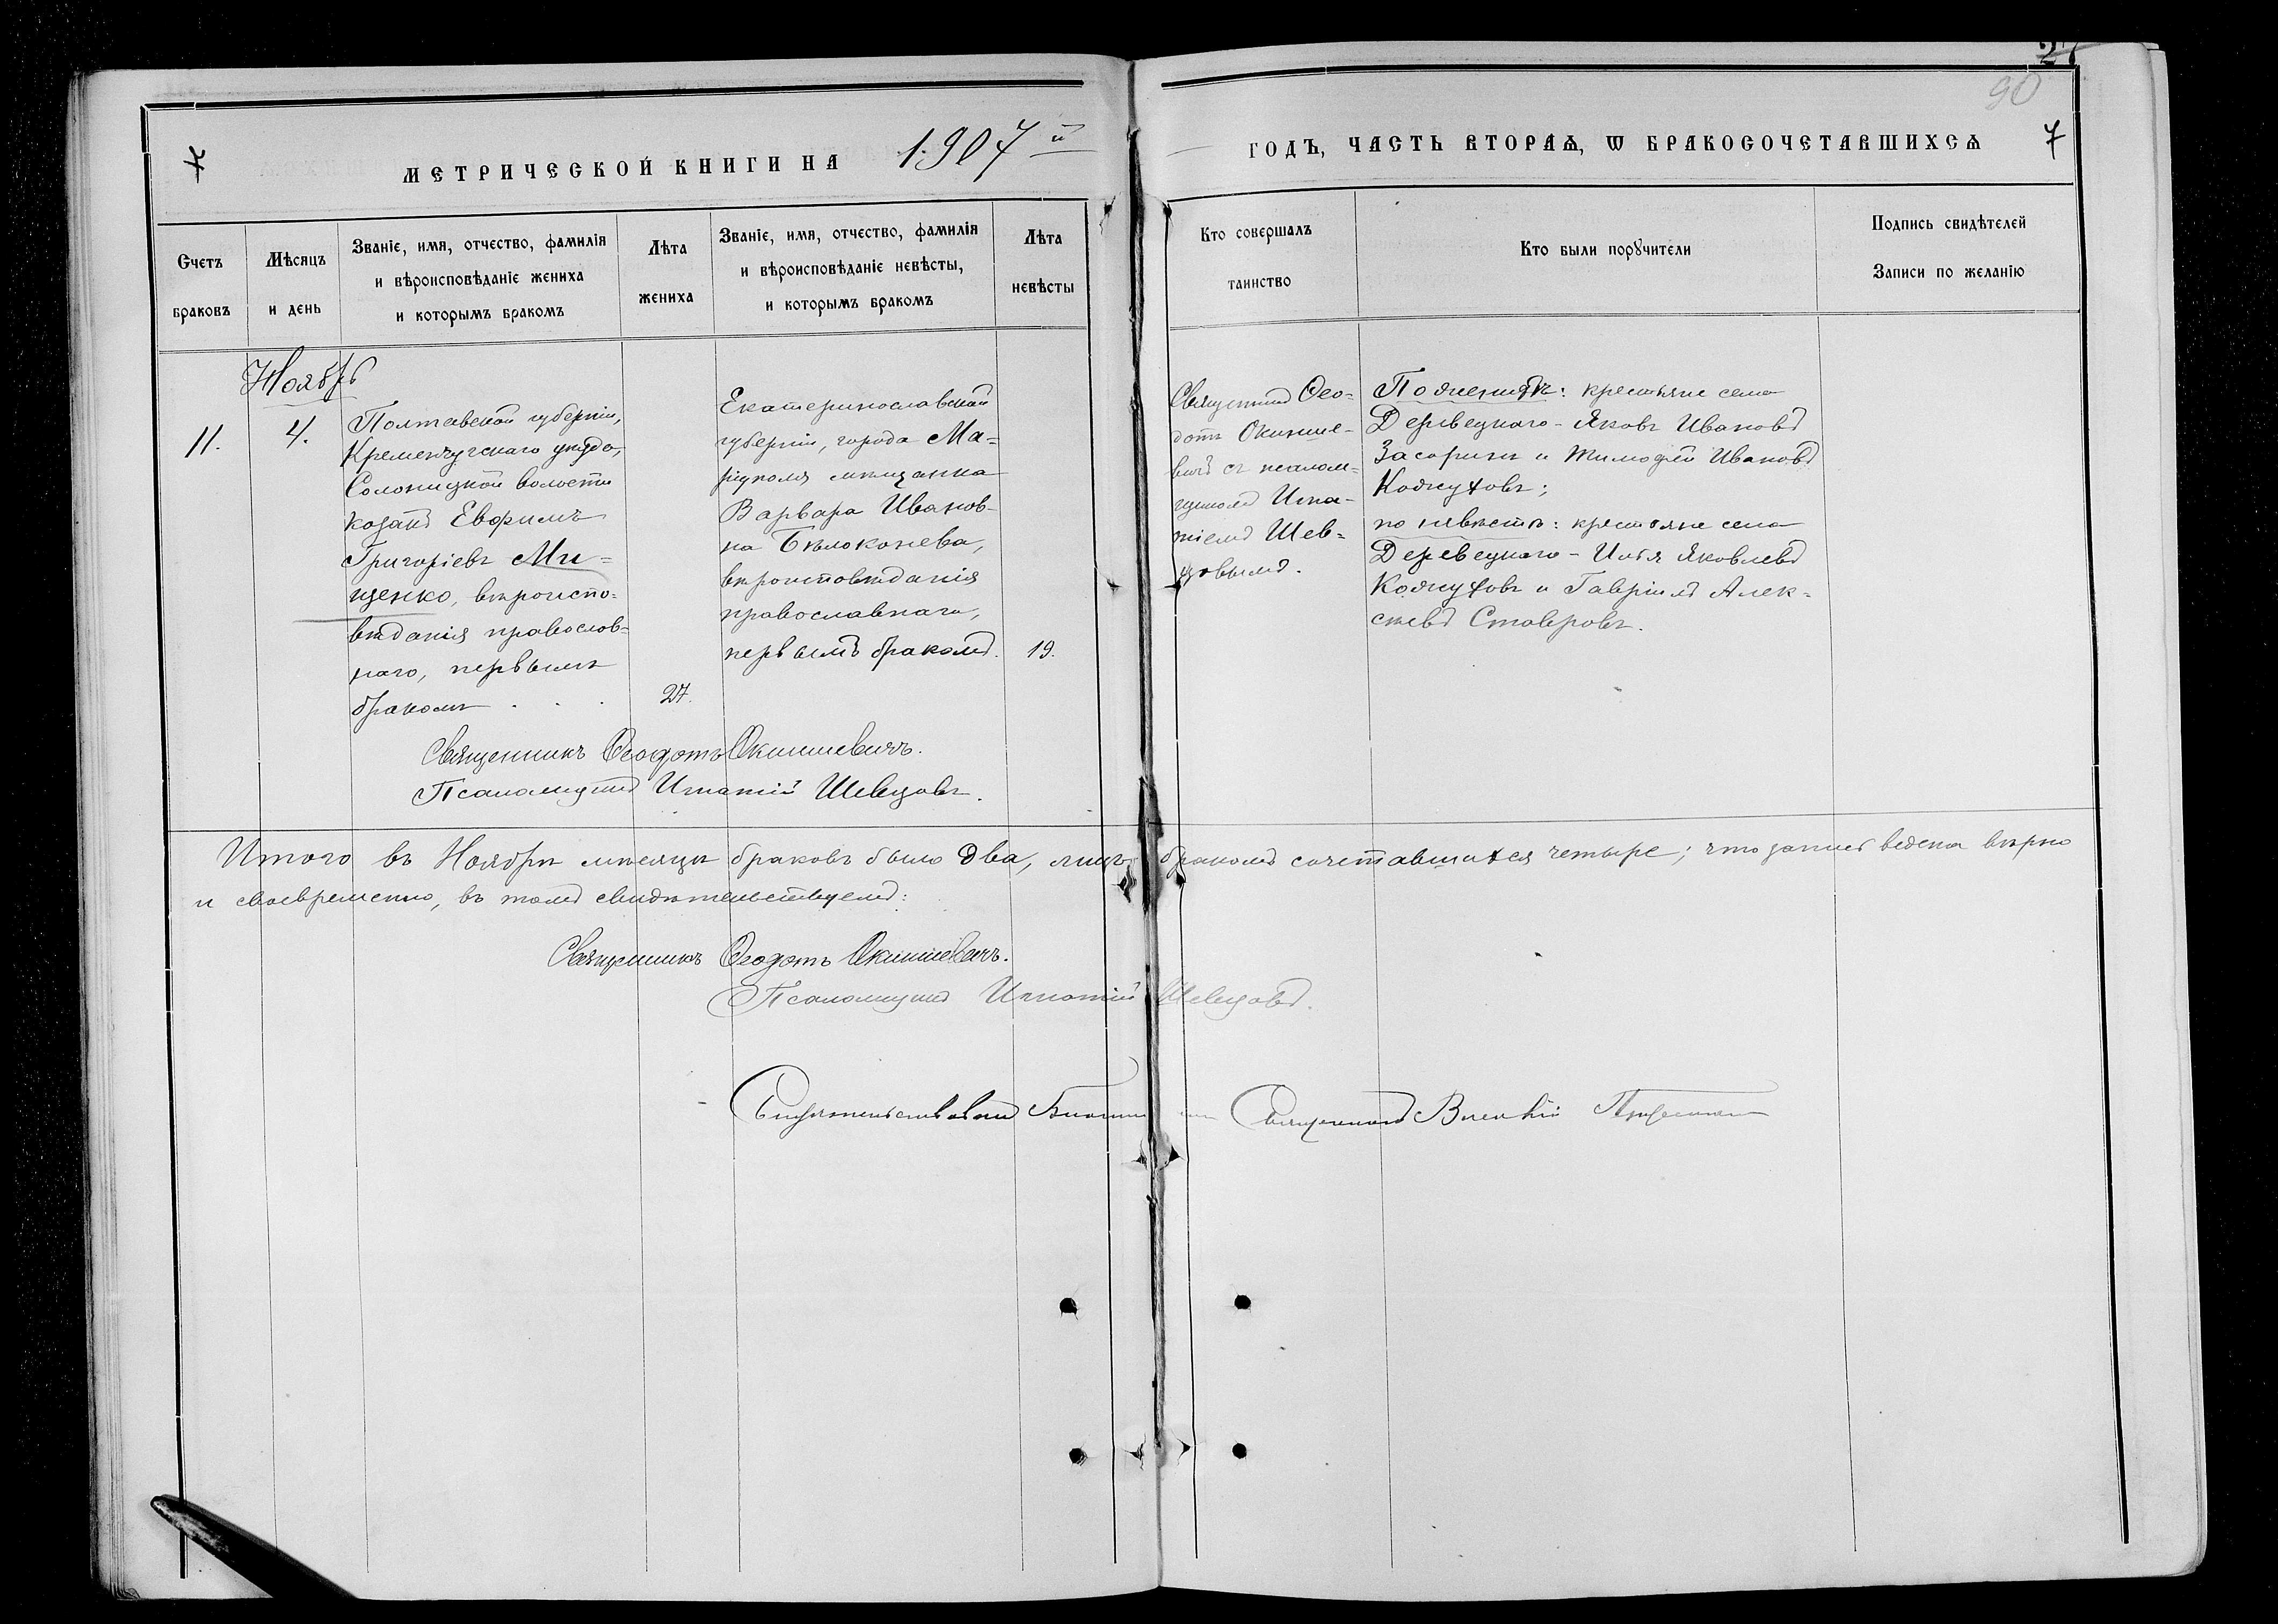 27
90
7
МЕТРИЧЕСКОЙ КНИГИ НА 1907й
ГОДЪ, ЧАСТЬ ВТОРАѦ, Ѡ БРАКОСОЧЕТАВШИХСѦ
7
Счетъ
браковъ
Мѣсяцъ
и день
Званіе, имя, отчество, фамилія
и вѣроисповѣданіе жениха
и которымъ бракомъ
Лѣта
жениха
Званіе, имя, отчество, фамилія
и вѣроисповѣданіе невѣсты,
и которымъ бракомъ
Лѣта
невѣсты
Кто совершалъ
таинство
Кто были поручители
Подпись свидѣтелей
Записи по желанію
Ноябрь
11.
4.
Полтавской губерніи,
Кременчугскаго уѣзда,
Солоницкой волости
козакъ Евфимъ
Григоріевъ Ми=
щенко, вѣроиспо=
вѣданія православ=
наго, первымъ
бракомъ . . .
27.
Екатеринославской
губерніи, города Ма=
ріуполя мѣщанка
Варвара Иванов-
на Бѣлоконева,
вѣроисповѣданія
православнаго,
первымъ бракомъ.
19.
Священникъ Ѳео-
дотъ Окинше-
вичъ съ псалом=
щикомъ Игна-
тіемъ Шев=
цовымъ.
По женихѣ: крестьяне села
Деревецкаго - Яковъ Ивановъ
Засоринъ и Тимофей Ивановъ
Кожуховъ;
по невѣстѣ: крестьяне села
Деревецкаго - Илья Яковлевъ
Кожуховъ и Гавріилъ Алек=
сѣевъ Ставровъ.
Священникъ Ѳеодотъ Окиншевичъ.
Псаломщикъ Игнатій Шевцовъ.
Итого въ Ноябрѣ мѣсяцѣ браковъ было два, лицъ бракомъ сочетавшихся четыре; что запись ведена вѣрно
и своевременно, въ томъ свидѣтельствуемъ:
Священникъ Ѳеодотъ Окиншевичъ.
Псаломщикъ Игнатій Шевцовъ.
Свидѣтельствовалъ Священникъ